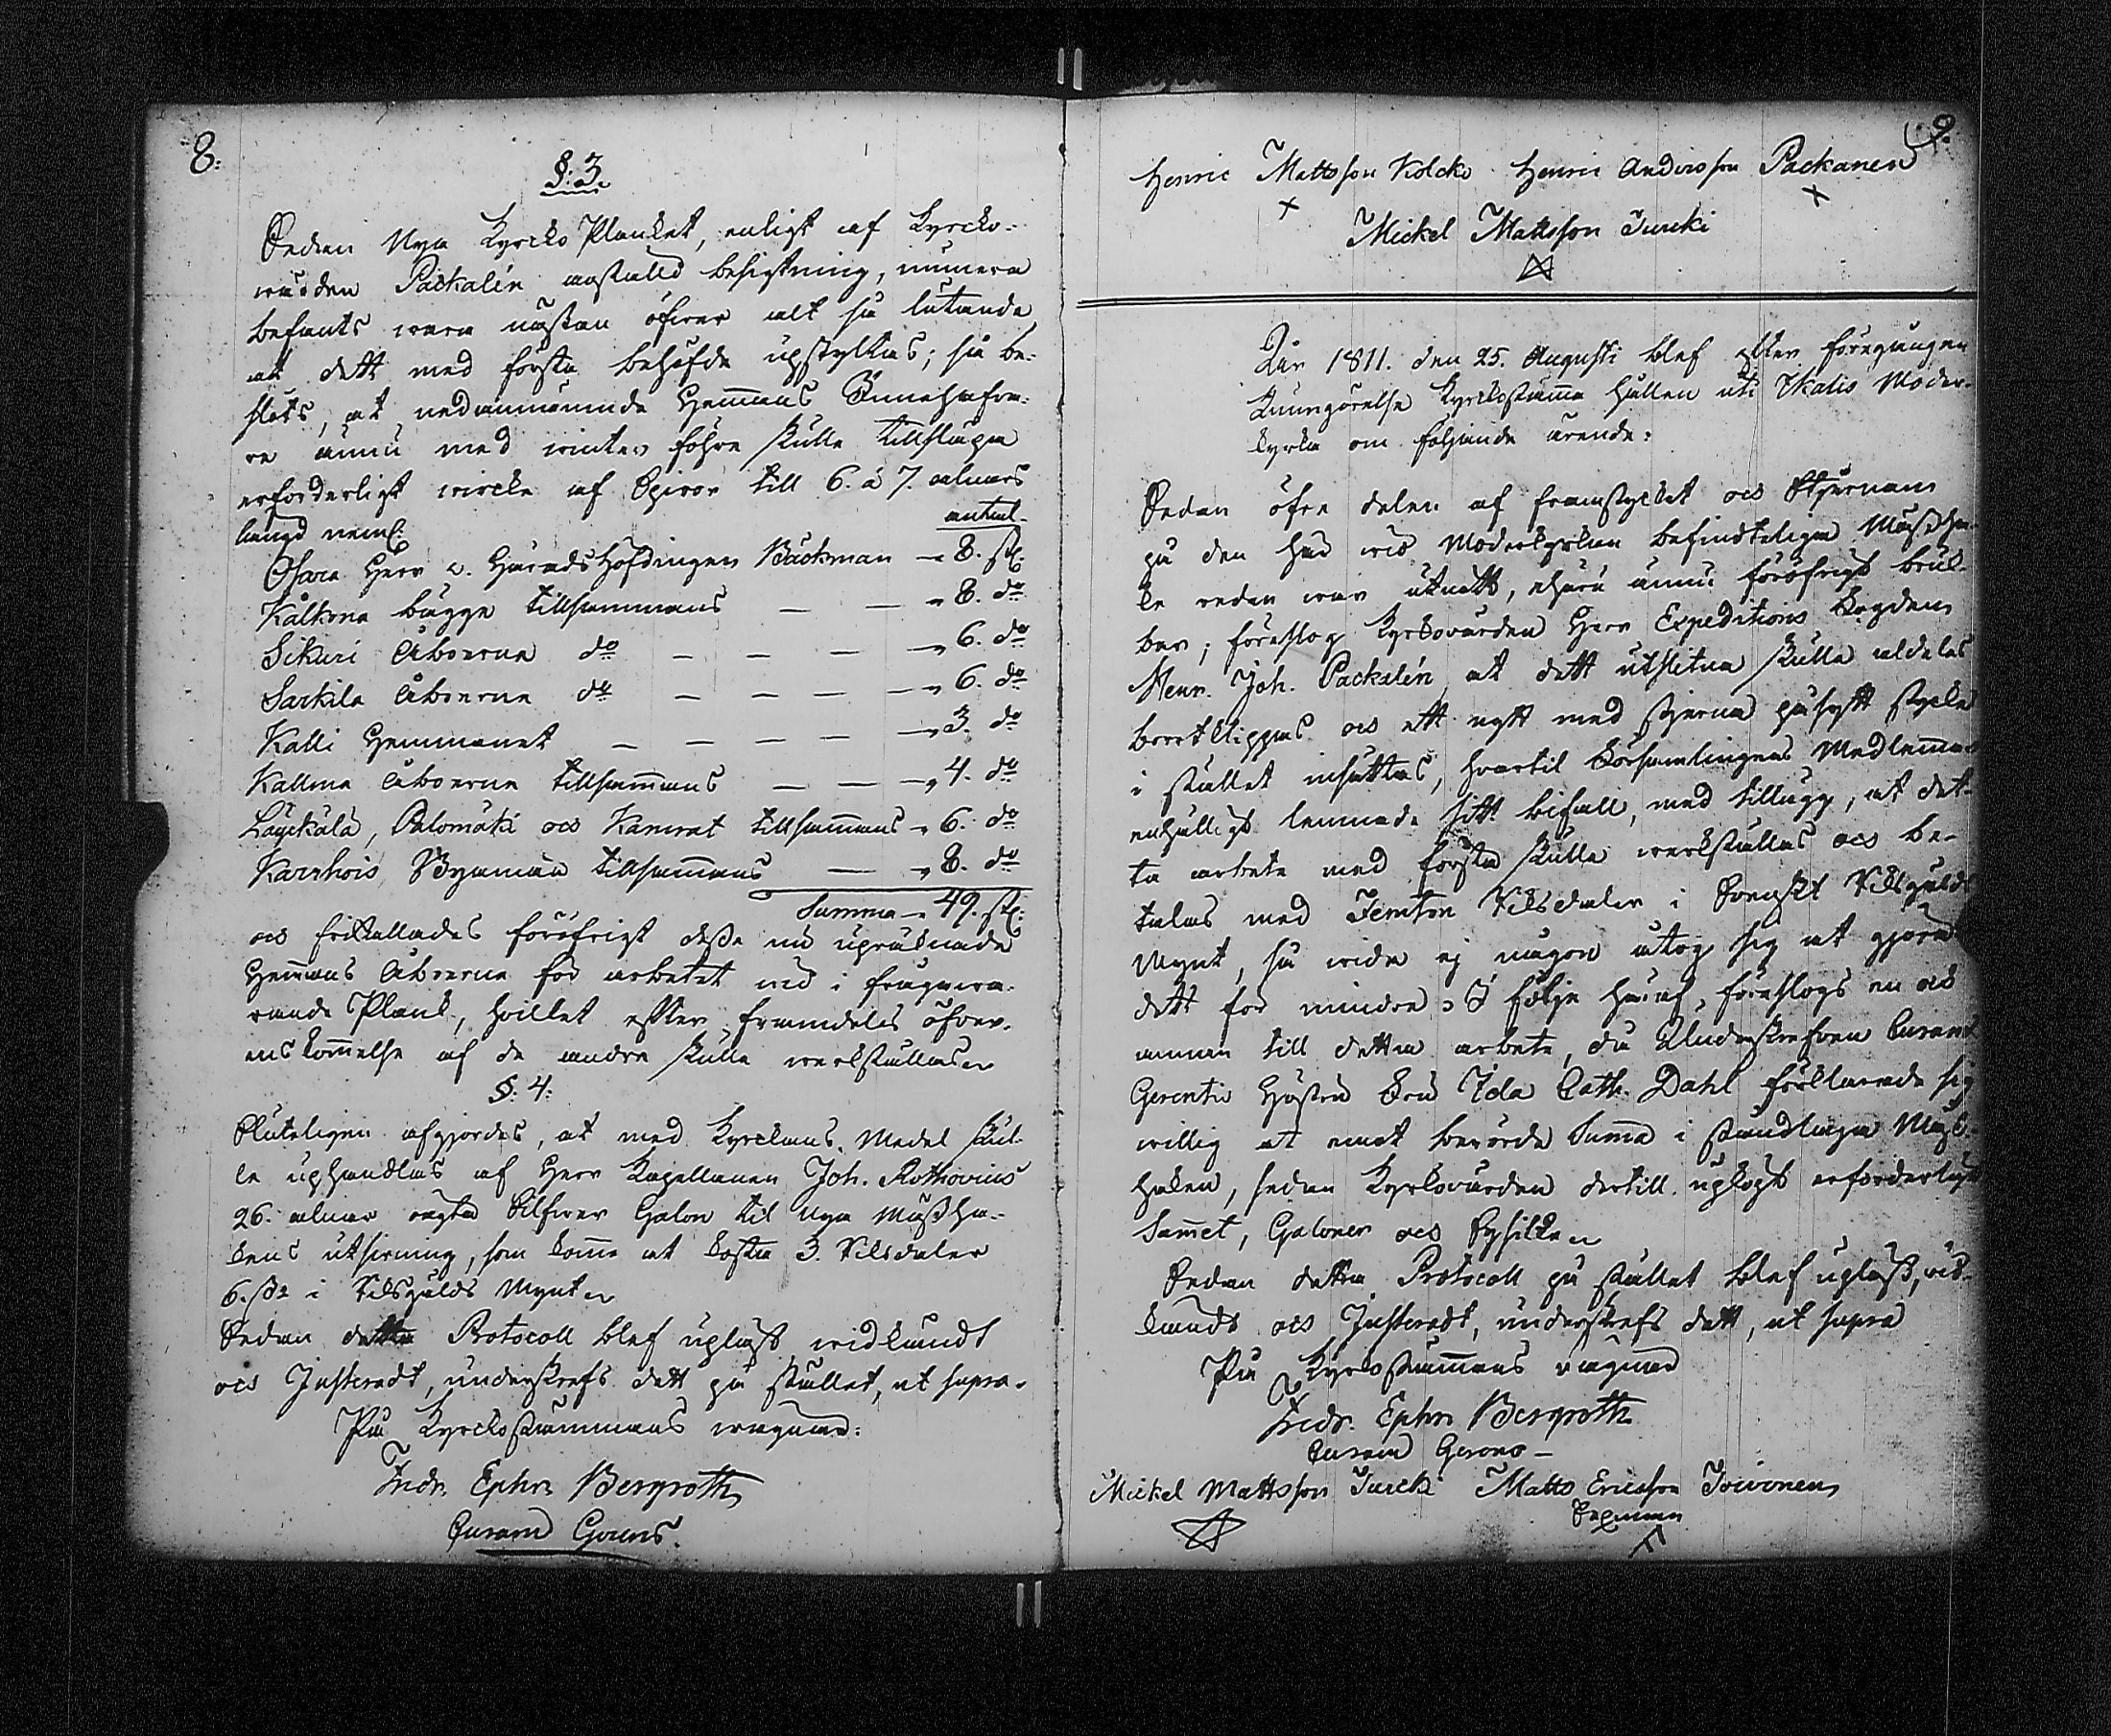 8:
§: 3.
Sedan Nya Kyrcko Planket, enligt af Kyrcko-
wärden Packalén anstäld besigtning, numera
befants wara nästan öfwer alt så lutande
att dett med första behöfde upstyltas; så be-
slöts, at nedannämnde Hemmans Innehafva-
re ännu med winter före skulle tillsläpa
erforderligt wircke af Spiror till 6. a 7. alnars
längd neml:
antal.
Osara Herr v. Häradshöfdingen Bäckman — 8. st:
Kålkona bägge tillsammans — — — 8. do
Sikuri Åboerne do — — — — 6. do
Sarkila Åboerne do — — — — 6. do
Kalli Hemmanet — — — — — 3. do
Kallma Åboerne tillsammans — — — 4. do
Läyckälä, Palomäki och Kamrat tillsammans — 6. do
Karrhois Byamän tillsammans — — 8. do
Summa — 49. st:
och frikallades föröfrigt desse nu upräknade
Hemmans Åboerne för arbetet wid i frågwa-
rande Plank, hvilket efter framdeles öfver-
enskommelse af de andre skulle werkställas.
§: 4:
Sluteligen afgjordes, at med Kyrckans Medel skul-
le uphandlas af Herr Kapellanen Joh. Rothovius
26. alnar ägta Silfwer Galon til Nya Mässha-
kens utsirning, som komme at kosta 3. Riksdaler
6. sk i Riksgälds Mynt.
Sedan detta Protocoll blef upläst widkändt
och Justeradt, underskrefs dett på stället, ut supra.
På Kyrckostämmans wägnar:
Fredr. Ephr. Bergroth
Curam Gerens.
9.
Henric Mattsson Kolcko Henric Andersson Packanen
x x
Mickel Mattsson Jurcki
År 1811. den 25. Augusti blef efter föregången
Kungörelse Kyrckostämma hållen uti Ikalis Moder-
kyrka om följande ärende:
Sedan öfre delen af framstycket och Stjernan
på den här wid Moderkyrkan befindteliga Mässha-
ke redan war utnött, ehuru ännu föröfrigt bruk-
bar; föreslog Kyrkowärden Herr Expeditions Fogden
Henr. Joh. Packalén at dett utslitna skulle aldeles
bortklippas och ett nytt med stjerna påsytt stycke
i stället insättas, hvartil Församlingens Medlemmar
enhälligt lemnade sitt bifall, med tillägg, at det-
ta arbete med första skulle werkställas och be-
talas med Femton Riksdaler i Svenskt Riksgälds
Mynt, så wida ej någon åtog sig at gjöra
dett för mindre. I följe häraf, föreslogs en och
annan till detta arbete, då Underskrefven Curam
Gerentis Hustru Fru Ida Cath. Dahl förklarade sig
willig at emot berörde Summa i ståndlaga Mäss-
haken, sedan Kyrkowärden dertill upköpt erforderligt
Sammet, Galoner och Sysilke.
Sedan detta Protocoll på stället blef upläst, wid-
kändt och Justeradt, underskrefs dett, ut supra
På Kyrckostämmans wägnar
Fredr. Ephr. Bergroth
Curam Gerens —
Mickel Mattsson Jurcki Matts Ericsson Toivonen
Sexman